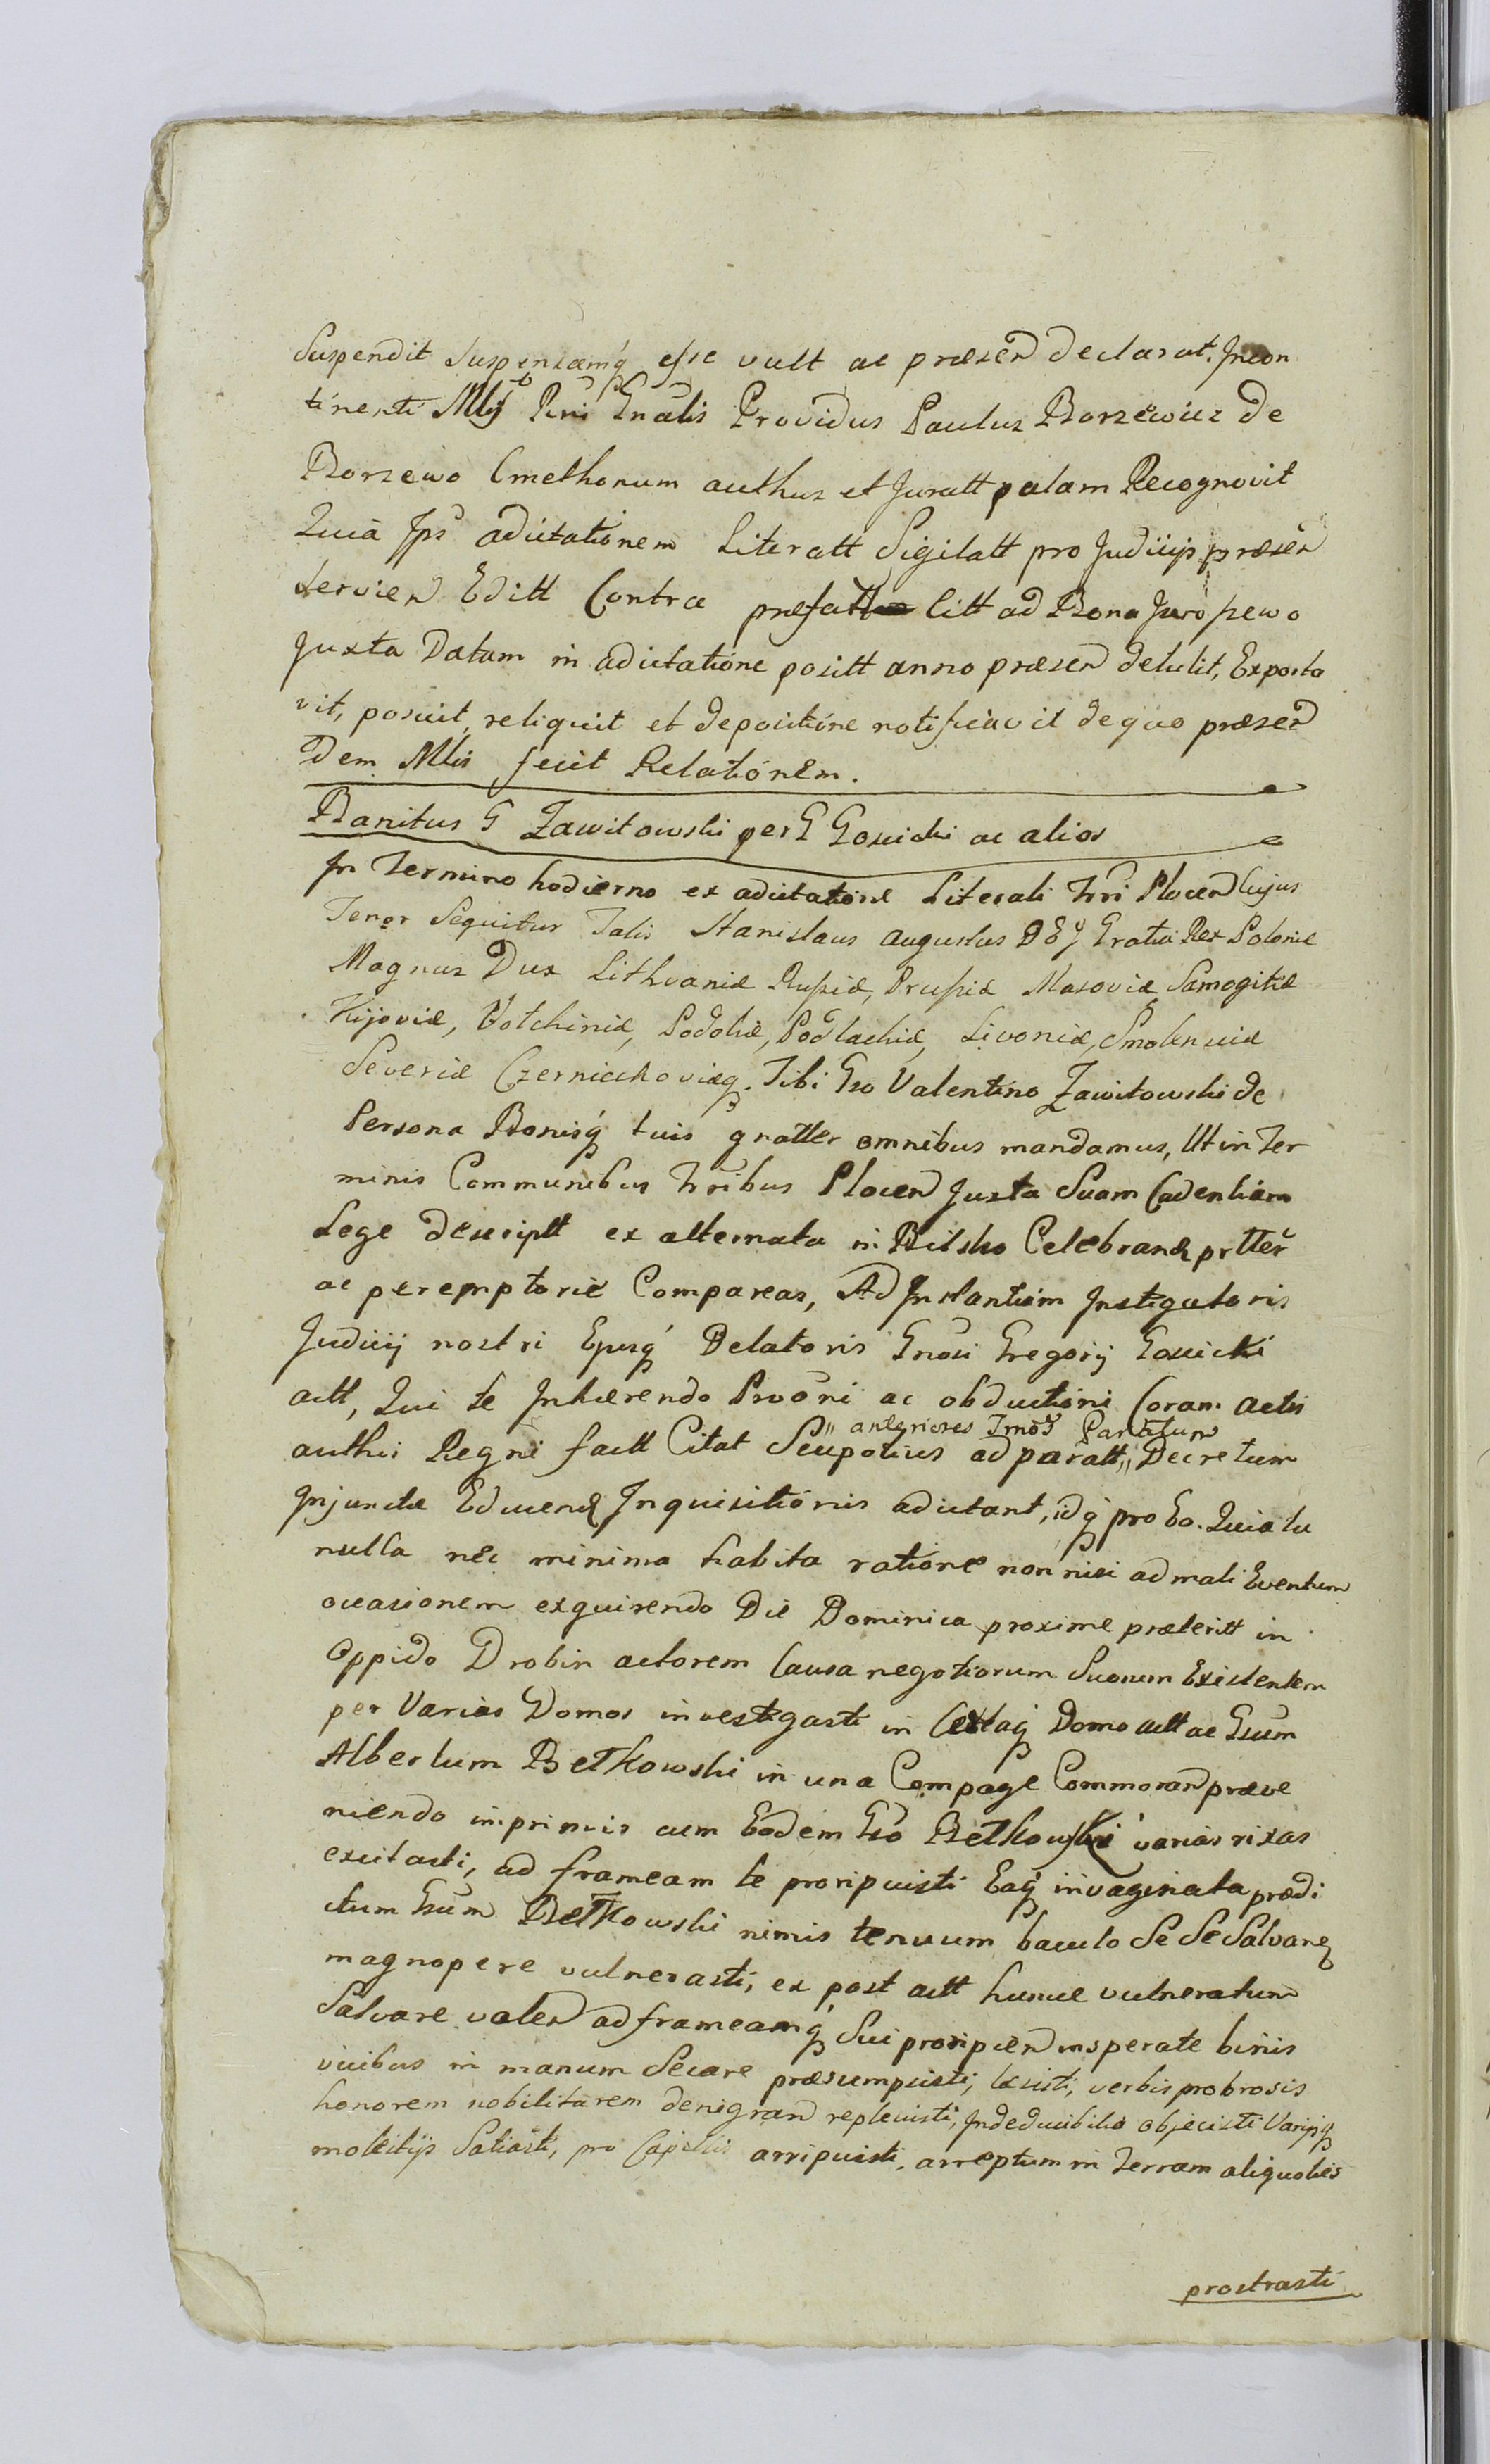 Suspendit Suspensamq́ esse vult ac præsen declarat. Incon
tinenti Mlij Rni Gnalis Providus Paulus Borzewicz de
Borzewo Cmethonum authus et Juratt palam Recognovit
Quia Ips adcitationem Literatt Sigilatt pro Judicijs præsen
servien Editt Contra præfatt Citt ad Bona
Juxta Datam in adcitatione positt anno præsen detulit, Exporta
vit, posuit, reliquit et de positione notificavit de quo præsen
dem Mlis fecit Relationem.
Banitus G Zawitowski per G Gosicki ac alios
In Termino hodierno ex adcitatione Literali Trri Plocen Cujus
Tenor Sequitur Talis Stanislaus Augustus DEJ Gratia Rex Poloniæ
Magnus Dux Lithvaniæ Russiæ, Prussiæ Masoviæ Samogitiæ
Kijoviæ, Volchiniæ, Podoliæ, Podlachiæ, Livoniæ, Smolensciæ
Severiæ Czerniechoviæq. Tibi Gso Valentino Zawitowski de
Persona Bonisq́ tuis gnatter omnibus mandamus, Ut in Ter
minis Communibus Trribus Plocen Juxta Suam Cadentiam
Lege descriptt ex alternata in Bielsko Celebrand prtter
ac peremptorie Compareas, Ad Instantiam Instigatoris
Judicij nostri Ejusq́ Delatoris Gnosi Gregorij Gosicki
actt, Qui te Inhærendo Prooni ac obductioni Coram actis
authis Regni factt Citat Seu potius ad paratt, " anteriores Imo Paratum Decretum
Injunctæ Educend Inquisitionis adcitant, idq́ pro Eo. Quia tu
nulla nec minima habita ratione non nisi ad mali Eventum
occasionem exquirendo Die Dominica proxime præteritt in
Oppido Drobin actorem Causa negotiorum Suorum Existentem
per Varias Domos investigasti in Certaq́ Domo actt ac Gsum
Albertum Betkowski in una Compage Commoran præve
niendo inprimis cum Eodem Gso Betkowski varias rixas
excitasti, ad frameam te proripuisti Eaq́ invaginata prædi
ctum Gsum Betkowski nimis tenuum baculo Se Se Salvand
magnopere vulnerasti, ex post actt hunce vulneratum
Salvare valen ad frameamq́ Sui proripien insperate binis
vicibus in manum Secare præsumpsisti, læsisti, verbis probrosis
honorem nobilitarem denigran replevisti, Indeducibilia objecisti Varijsq
molestijs Satiasti, pro Capillis arripuisti, arreptum in Terram aliquoties
prostrasti